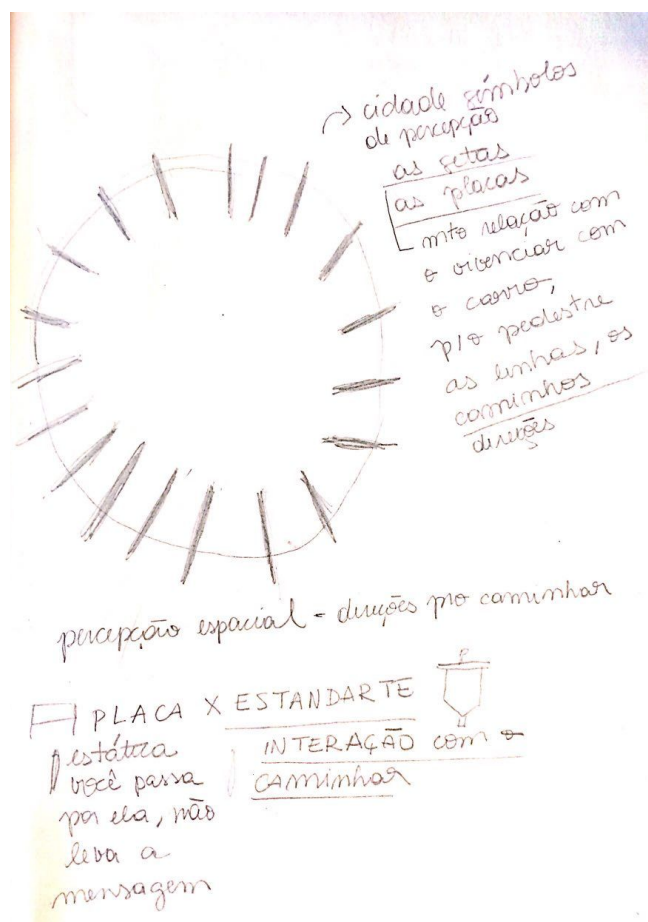 → cidade símbolos
de percepção
as setas
as placas
mto relação com
o vivenciar com
o carro,
p/o pedestre
as linhas, os
caminhos
direções
percepção espacial - direções pro caminhar
PLACA X ESTANDARTE
estática
você passa
por ela, não
leva a
mensagem
INTERAÇÃO com o
caminhar